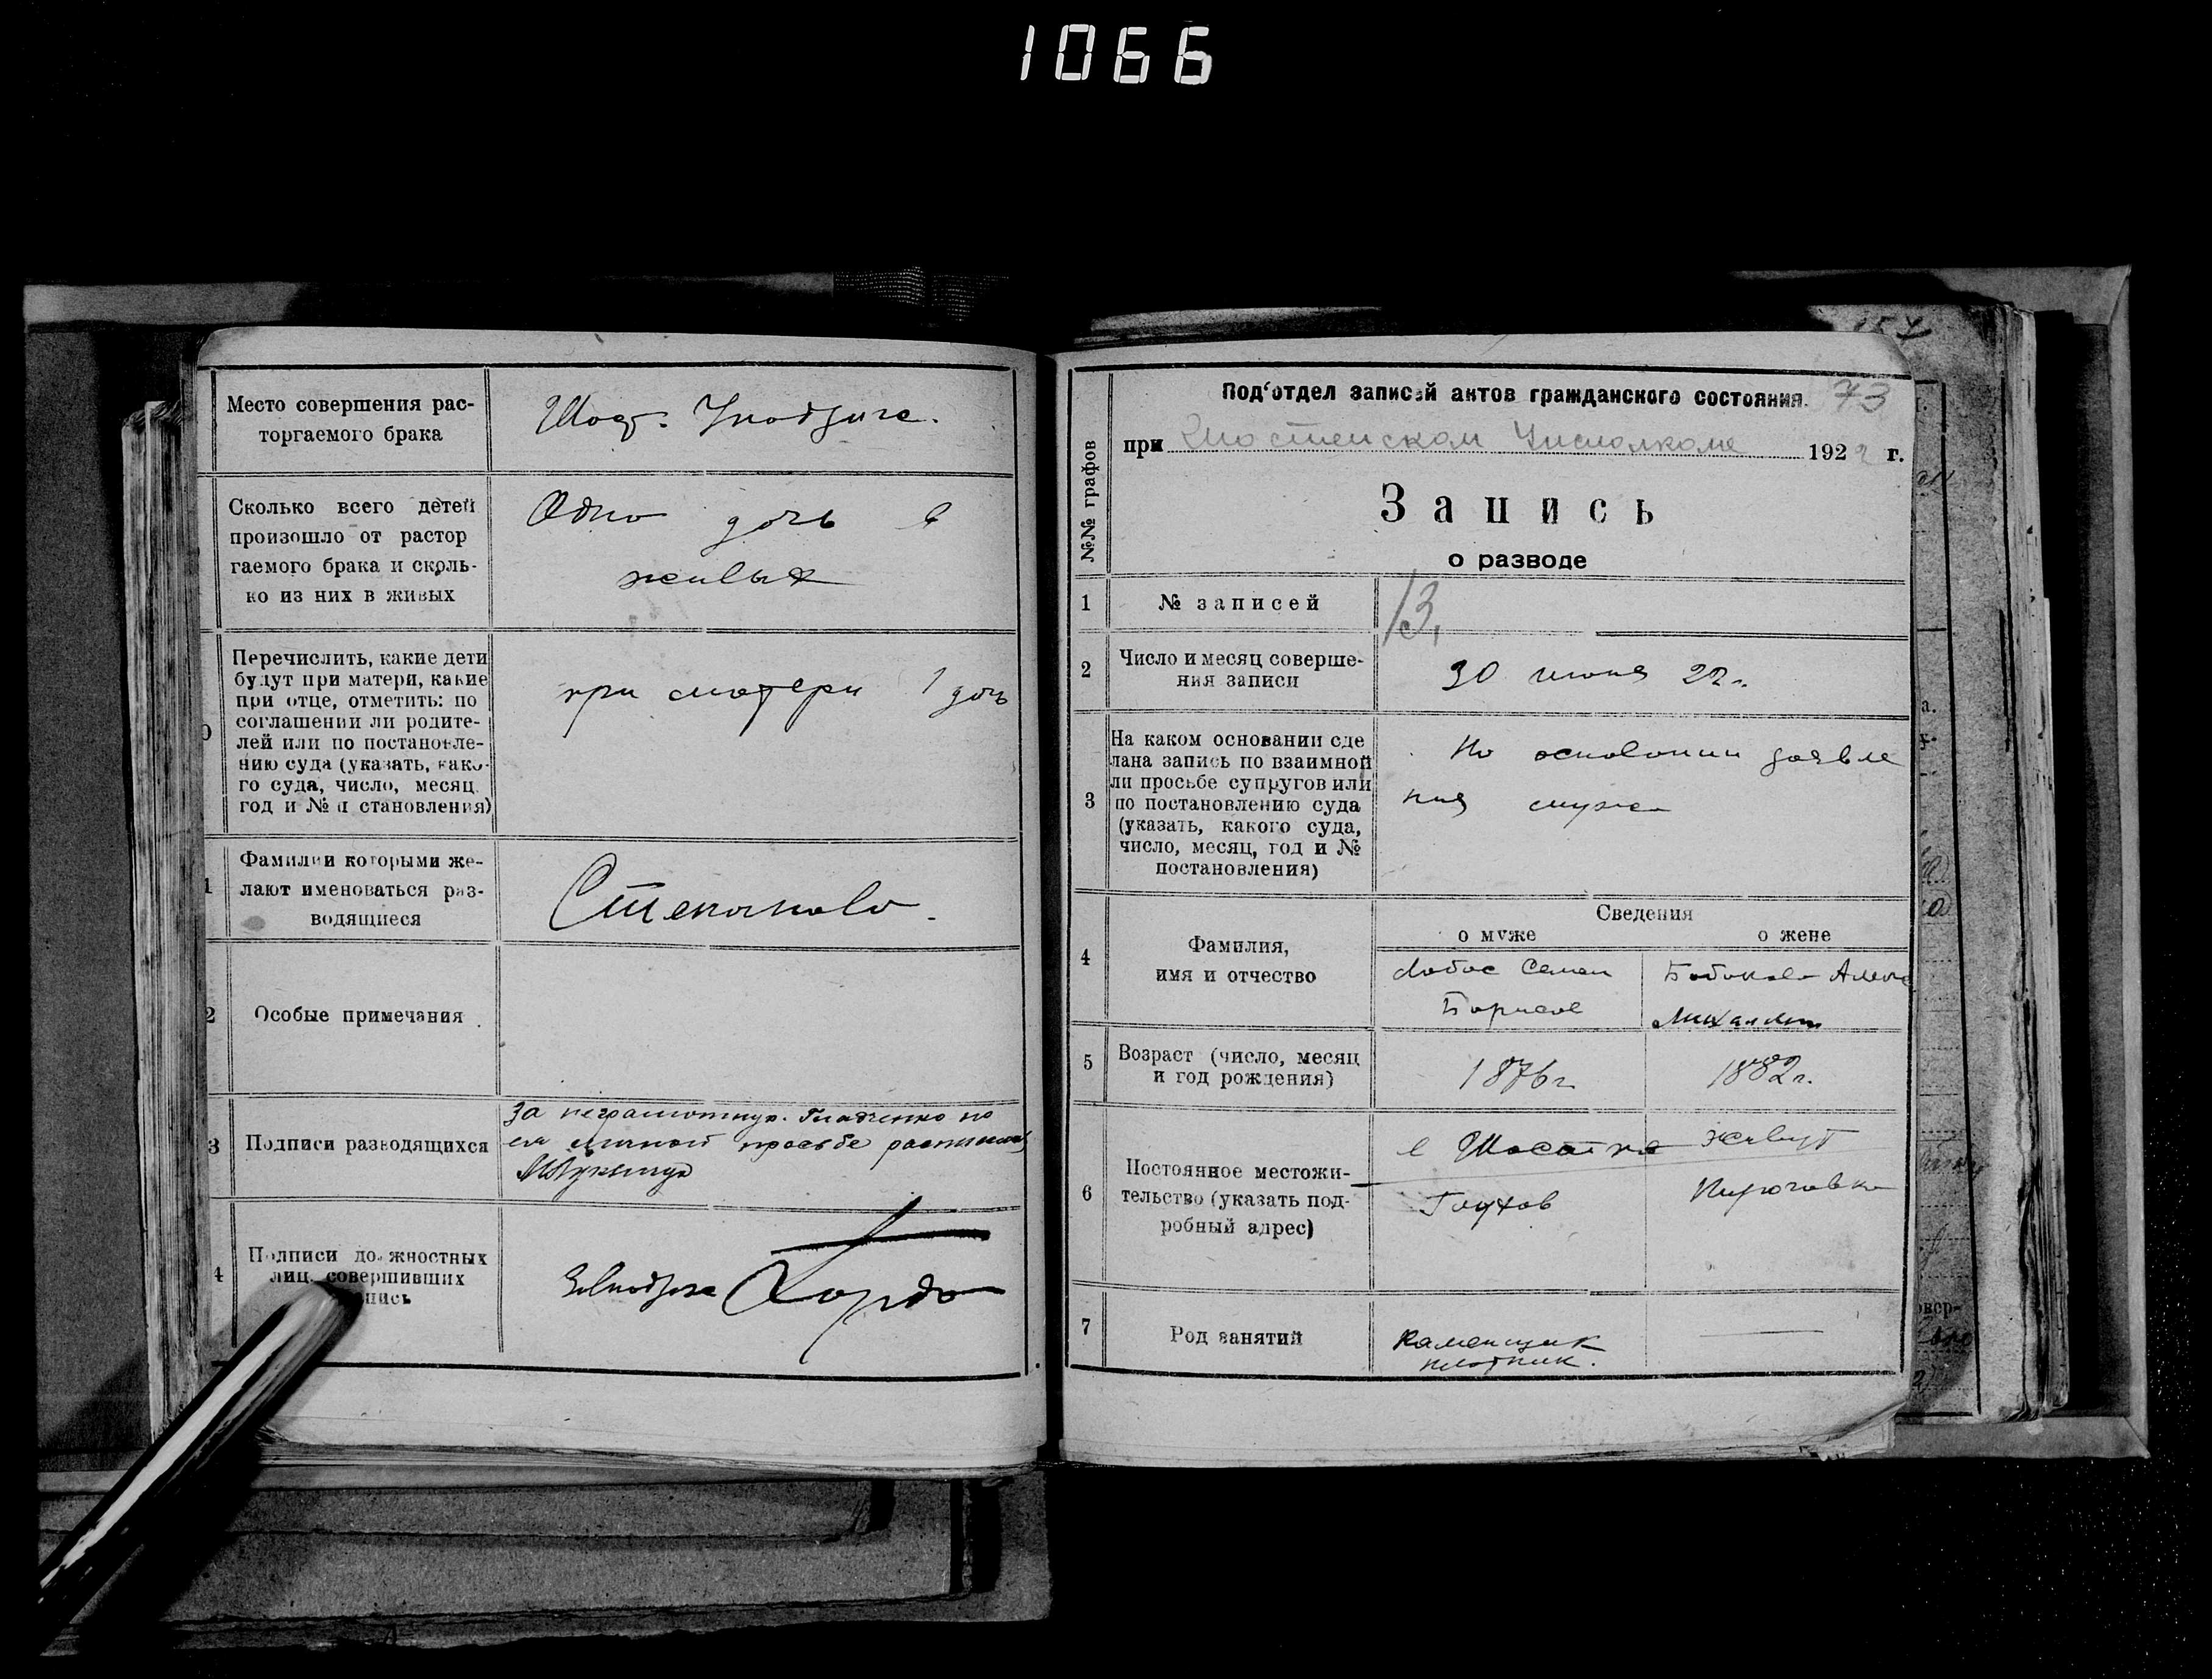 1066
Место совершения рас-
торгаемого брака
Шост.
Сколько всего детей
произошло от растор
гаемого брака и сколь-
ко из них в живых
Одна дочь в
живых
Перечислить, какие дети
будут при матери, какие
при отце, отметить: по
соглашению ли родите-
лей или по постановле-
нию суда (указать, како-
го суда, число, месяц
год и № п становления)
при матери 1 дочь
Фамилии которыми же-
лают именоваться раз-
водящиеся
Степанова.
2
Особые примечания
3
Подписи разводящихся
За неграмотную
ея личной просьбе
4
Подписи должностных
лиц. совершивших
пись
73
Под‘отдел записей актов гражданского состояния.
при Шостенском Исполкоме 1922 г.
№№ графов
Запись
о разводе
1
№ записей
13,
2
Число и месяц соверше-
ния записи
30 июня 22г.
3
На каком основании сде
лана запись по взаимной
ли просьбе супругов или
по постановлению суда
(указать, какого суда,
число, месяц, год и №
постановления)
На основании заявле
ния мужа
4
Фамилия,
имя и отчество
Сведения
о муже
о жене
Лобос Семен
Борисов
5
Возраст (число, месяц
и год рождения)
1876г.
1882г.
6
Постоянное местожи-
тельство (указать под-
робный адрес)
в Шостке живут
Глухов
Пирогowka
7
Род занятий
Каменщик
плотник.